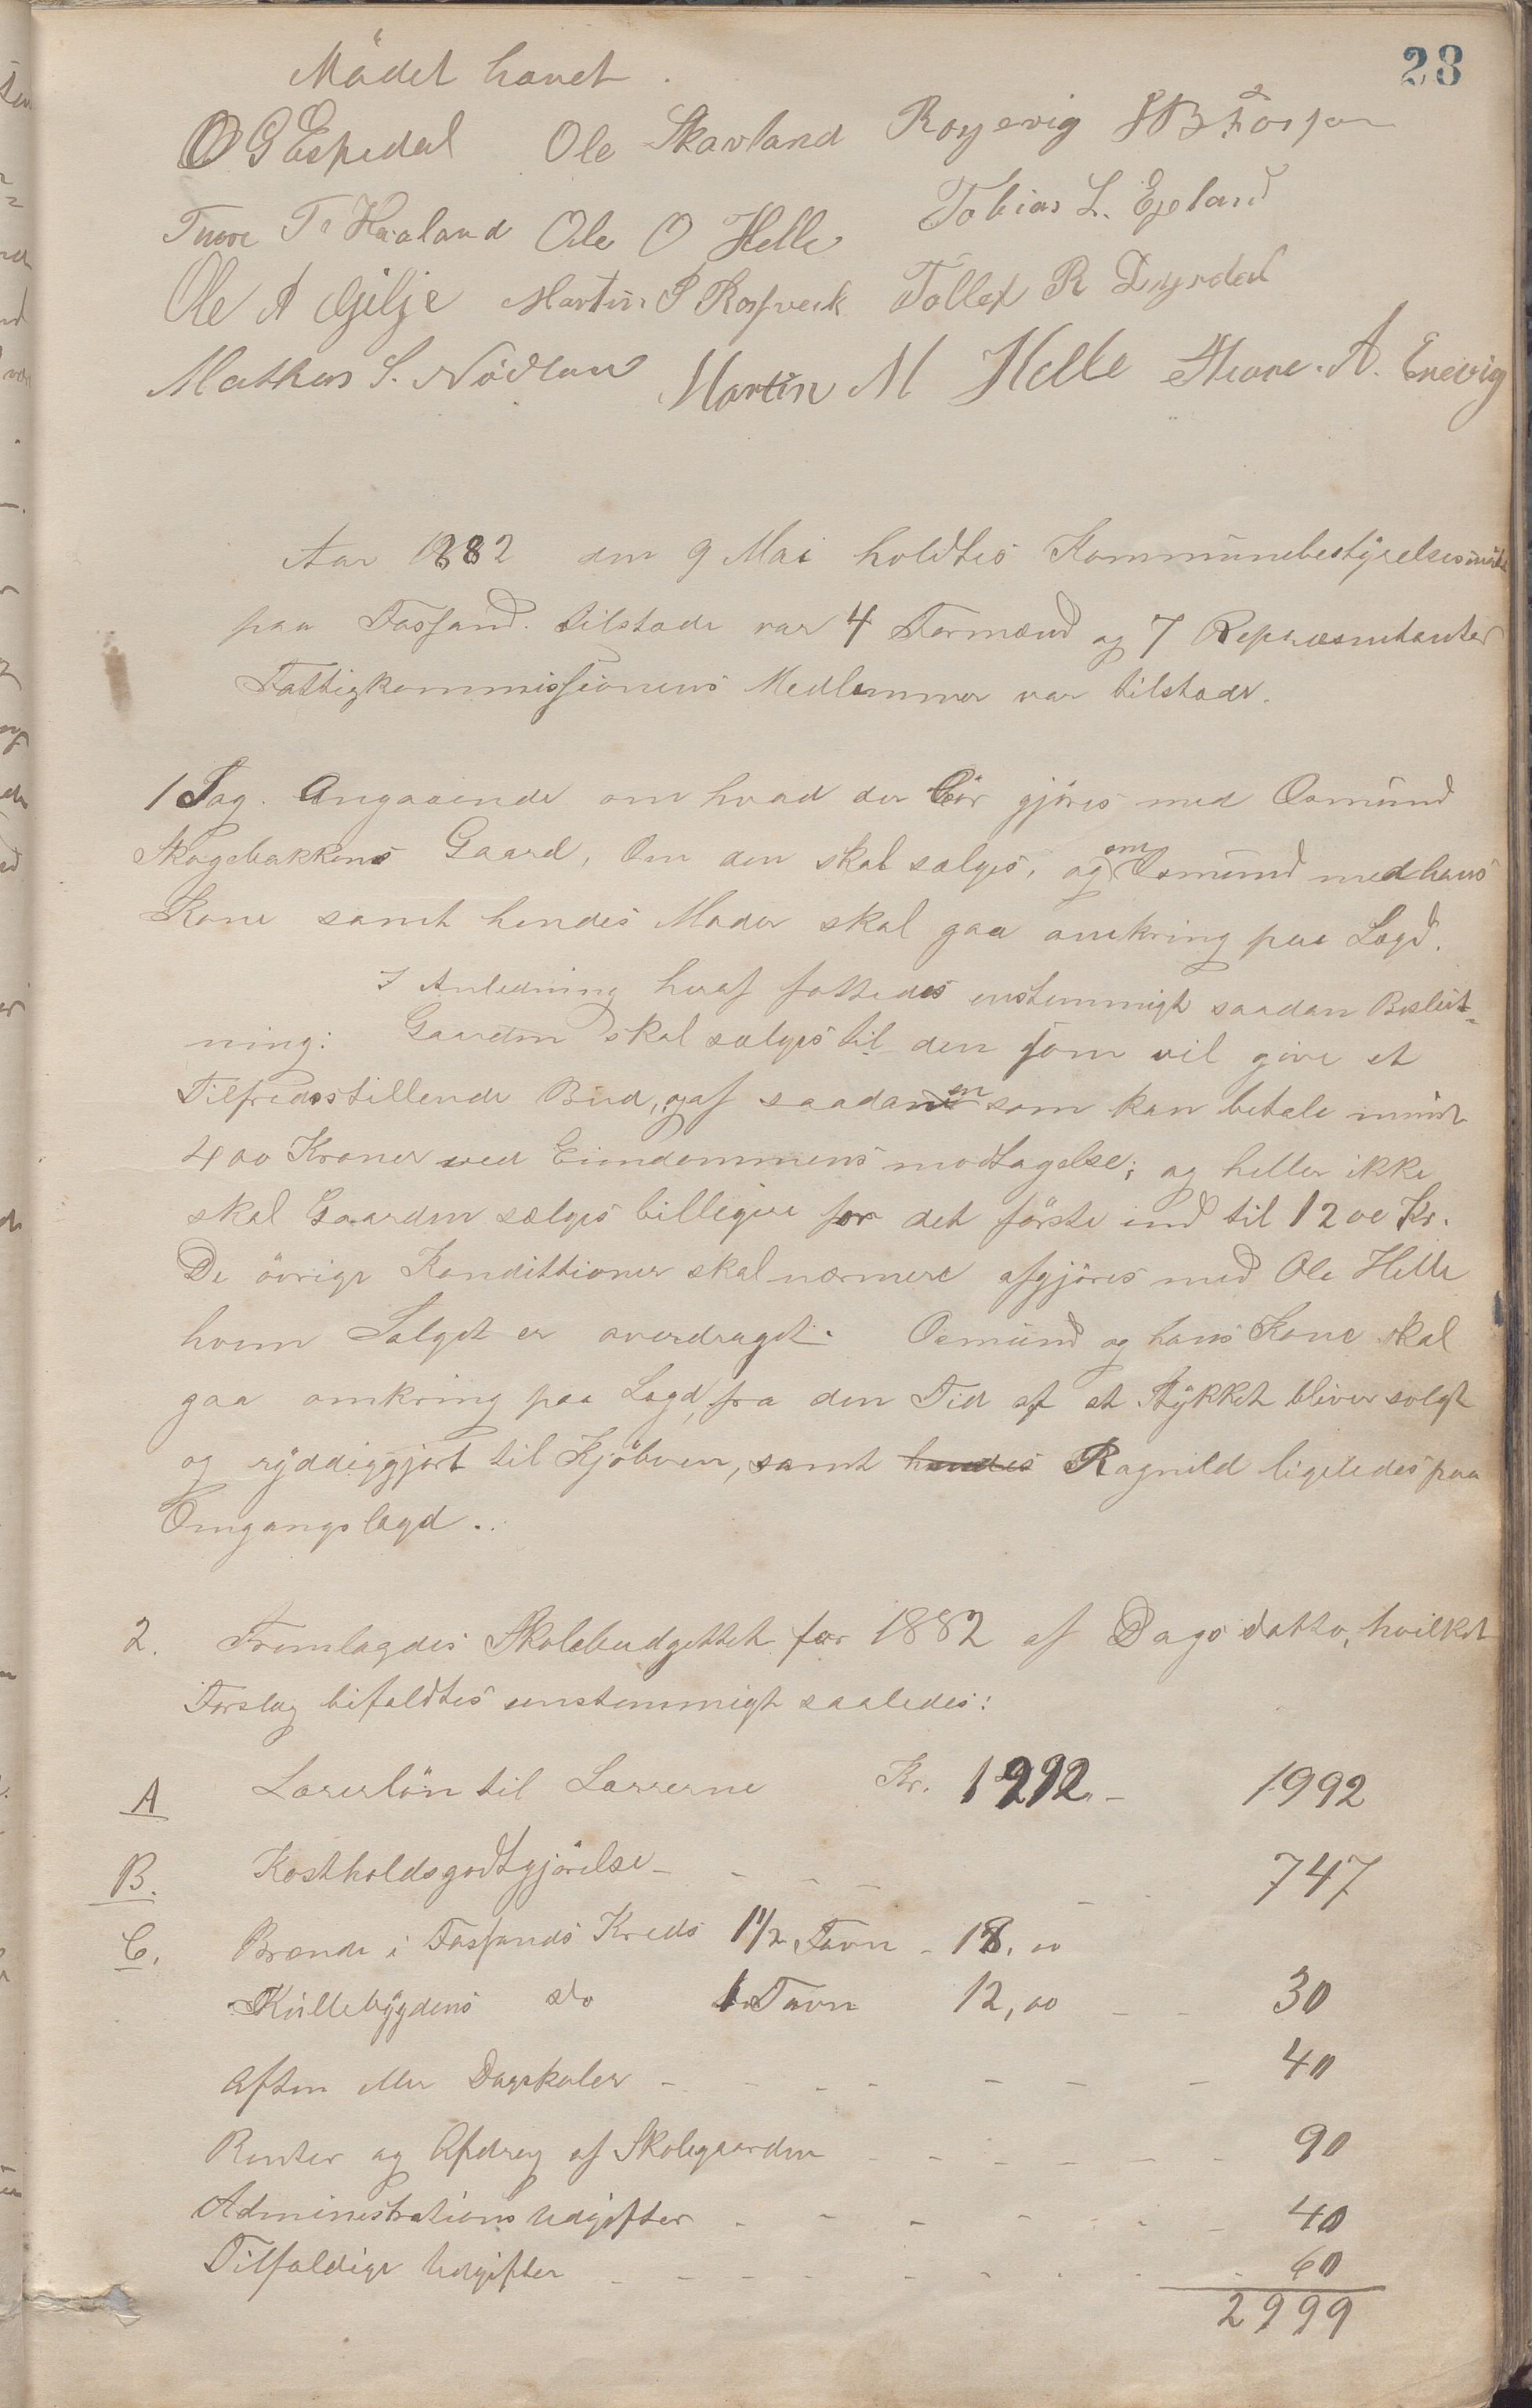 23
Mödet hævet.
O G Espedal Ole Skavland Rossevig
Tuore T. Haaland Ole O Helle Tobias L. Ejeland
Ole A Gilje Martin P Rossvik Tollef R Dyrdal
Mathias S. Nödland Martin M Helle Thore. A. Enevig
Aar 1882 den 9 Mai holdtes Kommunebestÿrelsesmöde
paa Fossand. tilstede var 4 Formænd og 7 Repræsentanter
Fattigkommissionens Medlemmer var tilstede.
1 Sag. Angaaende om hvad der bör gjöres med Osmund
Skogebakkens Gaard, Om den skal sælges, og om Osmund med hans
Kone samt hendes Moder skal gaa omkring paa Lægd.
I Anledning heraf fattedes enstemmigt saadan Beslut-
ning: Gaarden skal sælges til den som vil give et
Tilfredsstillende Bud, og af saadan en som kan betale mindst
400 Kroner ved Eiendommens modtagelse; og heller ikke
skal Gaarden sælges billigere for det förste end til 1200 Kr.
De övrige Kondittioner skal nærmere afgjöres med Ole Helle
hvem Salget er overdraget. Osmund og hans Kone skal
gaa omkring paa Lægd, fra den Tid af at Stÿkket bliver solgt
og rÿddiggjort til Kjöberen, samt hendes Ragnild ligeledes paa
Omgangslægd.
2. Fremlagdes Skolebudgettet for 1882 af Dags datto, hvilket
Forslag bifaldtes enstemmigt saaledes:
A Lærerlön til Lærerne Kr. 1992.- 1992
B. Kostholdsgodtgjörelse - - - - 747
C. Brænde i Fossands Kreds 1 1/2 Favn - 18,00
Kullebÿgdens do 1 Favn 12,00 - - 30
Aften eller Dagskoler - - - - - - - 40
Renter og Afdrag af Skolegaarden - - - - - - 90
Administrations Udgifter - - - - - - 40
Tilfældige Udgifter - - - - - - - 60
2999